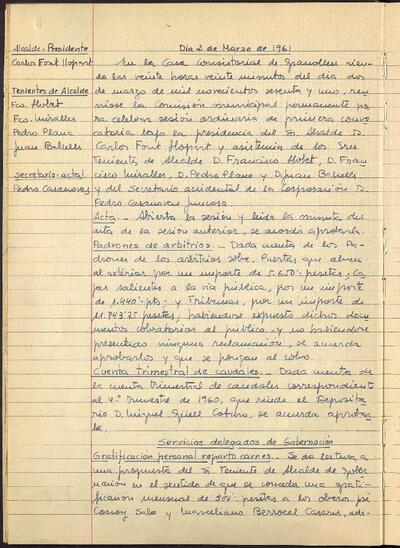 Alcalde-Presidente
Carlos Font Llopart
Tenientes de Alcalde
Fco. Llobet
Fco. Miralles
Pedro Plana
Juan Balcells
Secretario-actal.
Pedro Casanovas
Día 2 de Marzo de 1961
En la Casa Consistorial de Granollers sien-
do las veinte horas veinte minutos del día dos
de marzo de mil novecientos sesenta y uno, reu-
niose la Comisión municipal permanente pa
ra celebrar sesión ordinaria de primera convo
catoria bajo la presidencia del Sr. Alcalde D.
Carlos Font Llopart y asistencia de los Sres.
Tenientes de Alcalde D. Francisco Llobet, D. Fran
cisco Miralles, D. Pedro Plana y D. Juan Balcells
y del Secretario accidental de la Corporación D.
Pedro Casanovas
Acta.- Abierta la sesión y leída la minuta del
acta de la sesión anterior, se acordó aprobarla.
Padrones de arbitrios.- Dada cuenta de los Pa-
drones de los arbitrios sobre, Puertas que abren
al exterior por un importe de 5.650'- pesetas; Ca
jas salientes a la vía pública, por un importe
de 1.440'- pts; y Tribunas, por un importe de
11.843'75 pesetas, habiendose expuesto dichos docu
mentos cobratorios al público y no habiendose
presentado ninguna reclamación, se acuerda
aprobarlos y que se pongan al cobro.
Cuenta trimestral de caudales.- Dada cuenta de
la cuenta trimestral de caudales correspondiente
al 4º trimestre de 1960, que rinde el Deposita
rio D. Miguel, se acuerda aprobar
la.
Servicios delegados de Gobernación
Gratificación personal reparto carnes.- Se da lectura a
una propuesta del Sr. Teniente de Alcalde de Gober
nación en el sentido de que se conceda una grati-
ficación mensual de 300'- pesetas a los obreros José
Sala y Marceliano Berrocal Casares, ads-